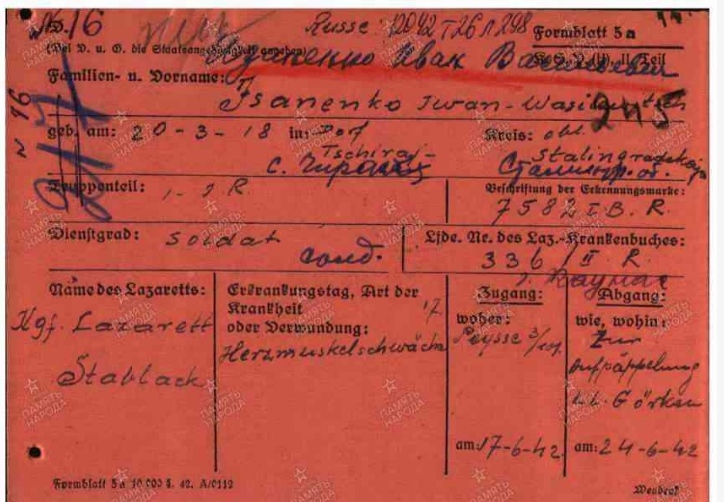 № 16
Russe
Formblatt 5a
(Bei V. u. O. die Staatsangehörigkeit angeben)
K.G.D. (H). II. Teil
Иван Васильевич
Familien- u. Vorname:
Isanenko Iwan-Wasiliwitsch
№ 16
245
geb. am: 20-3-18 in: Dorf
Kreis: obl.
Tschiraj-
Stalingradskaja
с.
Truppenteil: 1-2 R.
Beschriftung der Erkennungsmarke:
7582 I.B. R.
Dienstgrad: Soldat
Lfde. Nr. des Laz.-Krankenbuches:
336/II R.
Name des Lazaretts:
Kgf. Lazarett
Stablack
Erkrankungstag, Art der
Krankheit
oder Verwundung:
Herzmuskelschwäche
Zugang:
woher:
am: 17-6-42
Abgang:
wie, wohin:
Zur
Aufpäppelung
Görken
am: 24-6-42
Formblatt 5a 10 000 8. 42. A/0112
Wenden!
ПАМЯТЬ НАРОДА